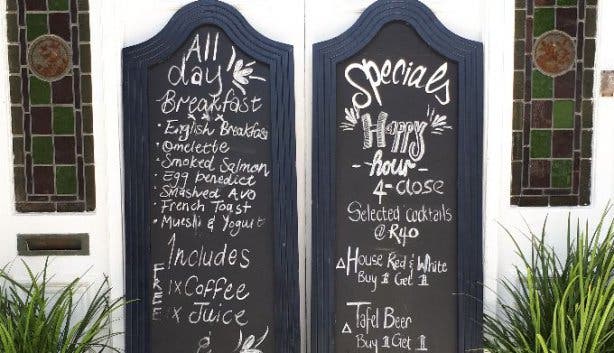 All
day
Breakfast
x x x
• English Breakfast
• Omelette
• Smoked Salmon
• Egg benedict
• Smashed Avo
• French Toast
• Mueshi & Yogurt
Includes
FREE
1 x Coffee
1 x Juice
&
Specials
Happy
- hour -
4-close
Selected Cocktails
@ R40
House Red & White
Buy 1 Get 1
Tafel Beer
Buy 1 Get 1